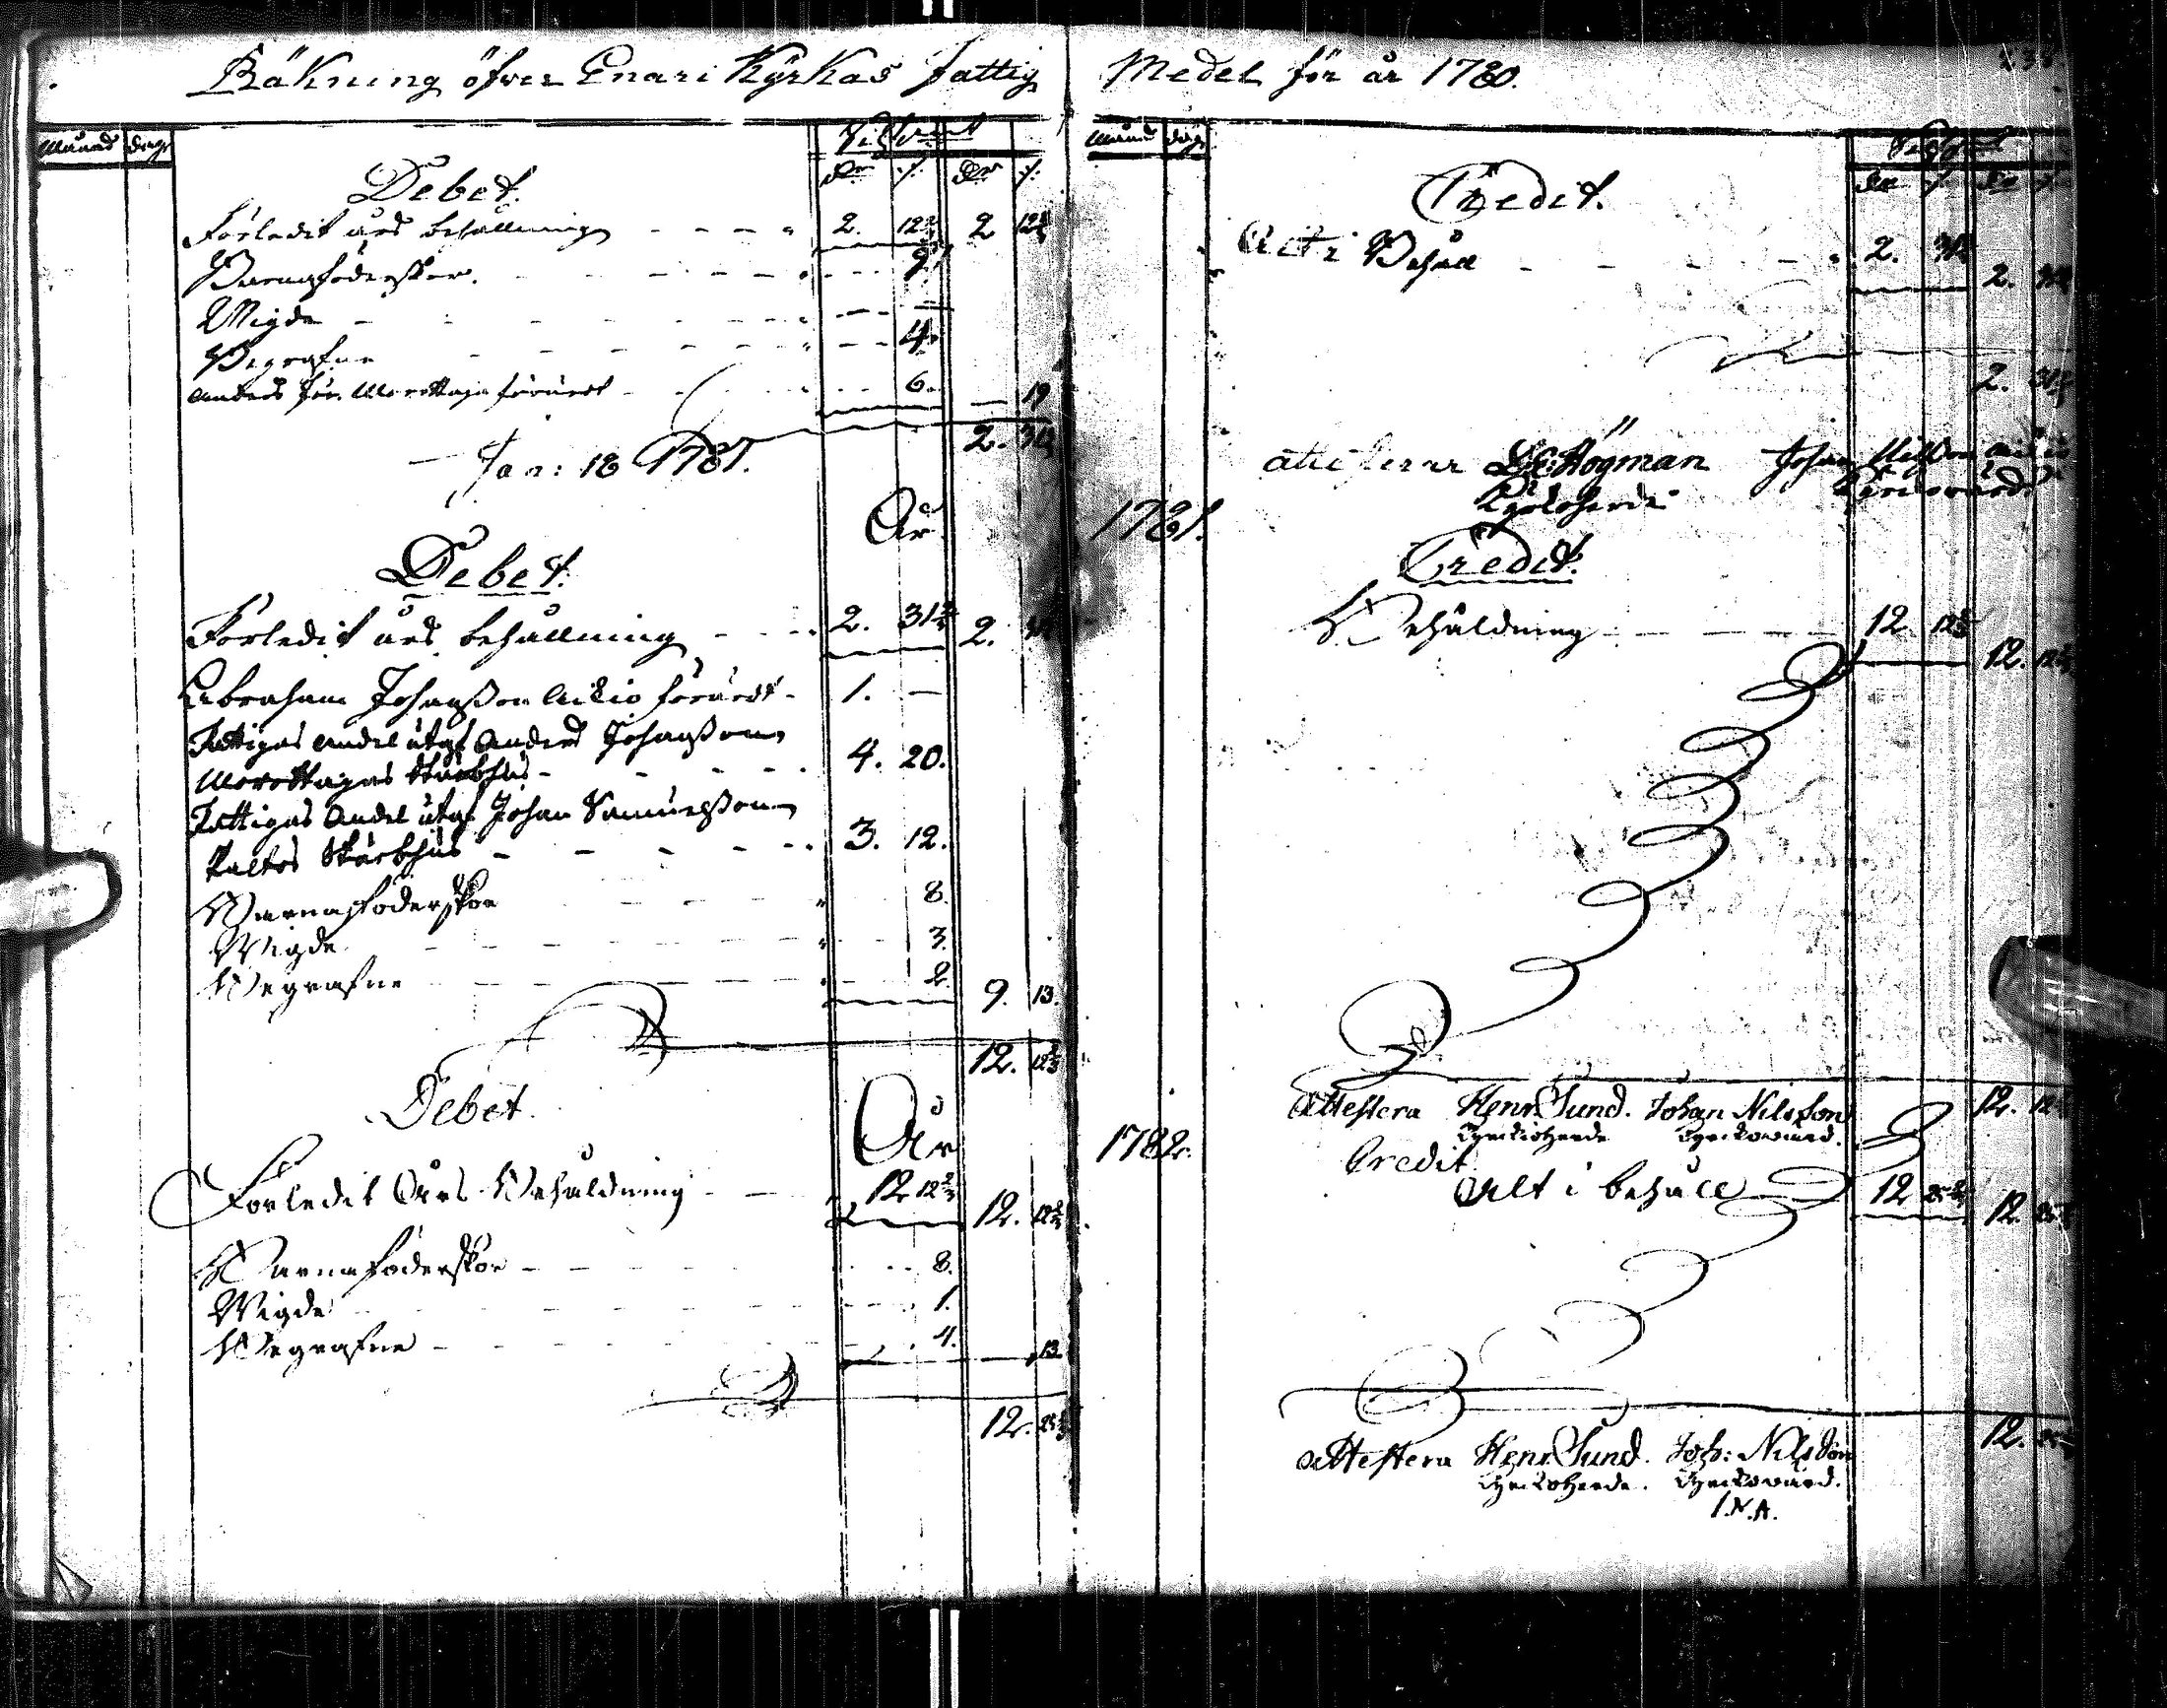 Räkning öfver Enari Kyrkas Fattig Medel för år 1780.
Månad dag
Silfvermt
dr ./. dr ./.
Debet.
Förledit års behållning 2. 12 2 12
Barnaföderskor. 9
Wigde — —
Begrafne 4.
Anders Joh. Morottaja förärdt 6. — 19
2. 31
Jan: 18 1781.
Månad dag
Credit.
Alt i Behåll 2. 31
2. 31
2. 31
L. Högman Johan Nilsson Aikio
Kyrkoherde Kyrkovärd
År 1781.
Debet.
Förledit års behållning 2. 31 2.
Abraham Johansson Aikio förärdt 1. —
Fattigas andel utaf Anders Johansson
Morottajas Stärbhus 4. 20.
Fattigas Andel utaf Johan Samuelsson
Paltos Stärbhus 3. 12.
Barnaföderskor 8.
Wigde 3.
Begrafne 2. 9. 13.
12. 12 2/3
Credit.
Behåldning 12 12 2/3
12. 12
12. 12
Attestera Henr. Sund. Johan Nilsson
Kyrkioherde Kyrkovärd.
År 1782.
Debet.
Förledit Års Behåldning 12 12 2/3 12. 12 2/3
Barnaföderskor 8.
Wigde 1.
Begrafne 4. 13
12. 25
Credit
Alt i behåll 12 25 2/3 12. 25
12.
attestera Henr. Sund. Joh: Nilsson
Kyrkoherde. Kyrkovärd.
I.N.A.